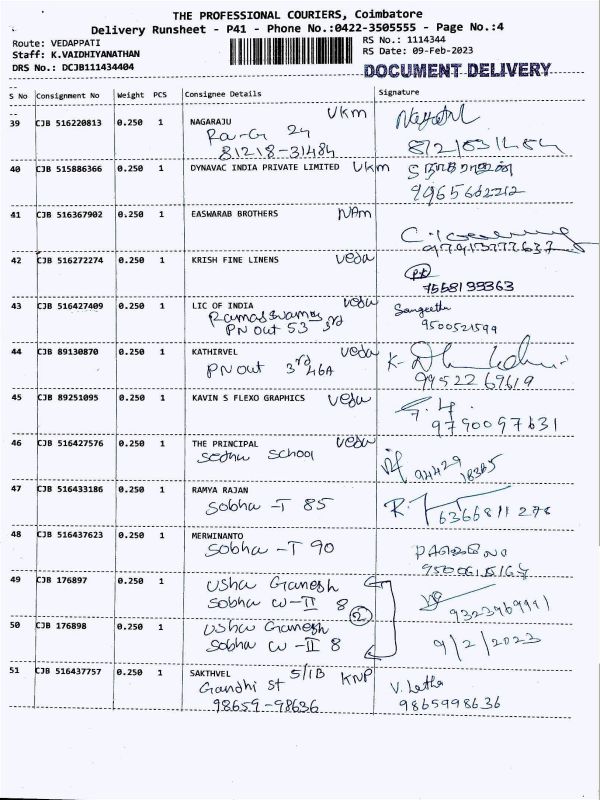 THE PROFESSIONAL COURIERS, Coimbatore
Delivery Runsheet - P41 - Phone No.:0422-3505555 - Page No.:4
Route: VEDAPPATI RS No.: 1114344
Staff: K.VAIDHIYANATHAN RS Date: 09-Feb-2023
DRS No.: DCJB111434404 DOCUMENT DELIVERY
S No Consignment No Weight PCS Consignee Details Signature
39 CJB 516220813 0.250 1 NAGARAJU Vkm
Ra-G 24
81218-31484 8121831484
40 CJB 515886366 0.250 1 DYNAVAC INDIA PRIVATE LIMITED Vkm
41 CJB 516367902 0.250 1 EASWARAB BROTHERS NAm
42 CJB 516272274 0.250 1 KRISH FINE LINENS veda
7558199363
43 CJB 516427409 0.250 1 LIC OF INDIA veda Sangeetha
Ramaswamy 3rd
PN out 53 9500521599
44 CJB 89130870 0.250 1 KATHIRVEL veda
PN out 3rd 46A 9952269619
45 CJB 89251095 0.250 1 KAVIN S FLEXO GRAPHICS veda
9790097631
46 CJB 516427576 0.250 1 THE PRINCIPAL veda
school 94429
18365
47 CJB 516433186 0.250 1 RAMYA RAJAN
Sobha -T 85
48 CJB 516437623 0.250 1 MERWINANTO
Sobha -T 90
49 CJB 176897 0.250 1 Usha Ganesh
Sobha W-II 8
2
50 CJB 176898 0.250 1 Usha Ganesh
Sobha W-II 8 9/2/2023
51 CJB 516437757 0.250 1 SAKTHVEL 5/1B KNP
Gandhi St V. Latha
98659-98636 9865998636